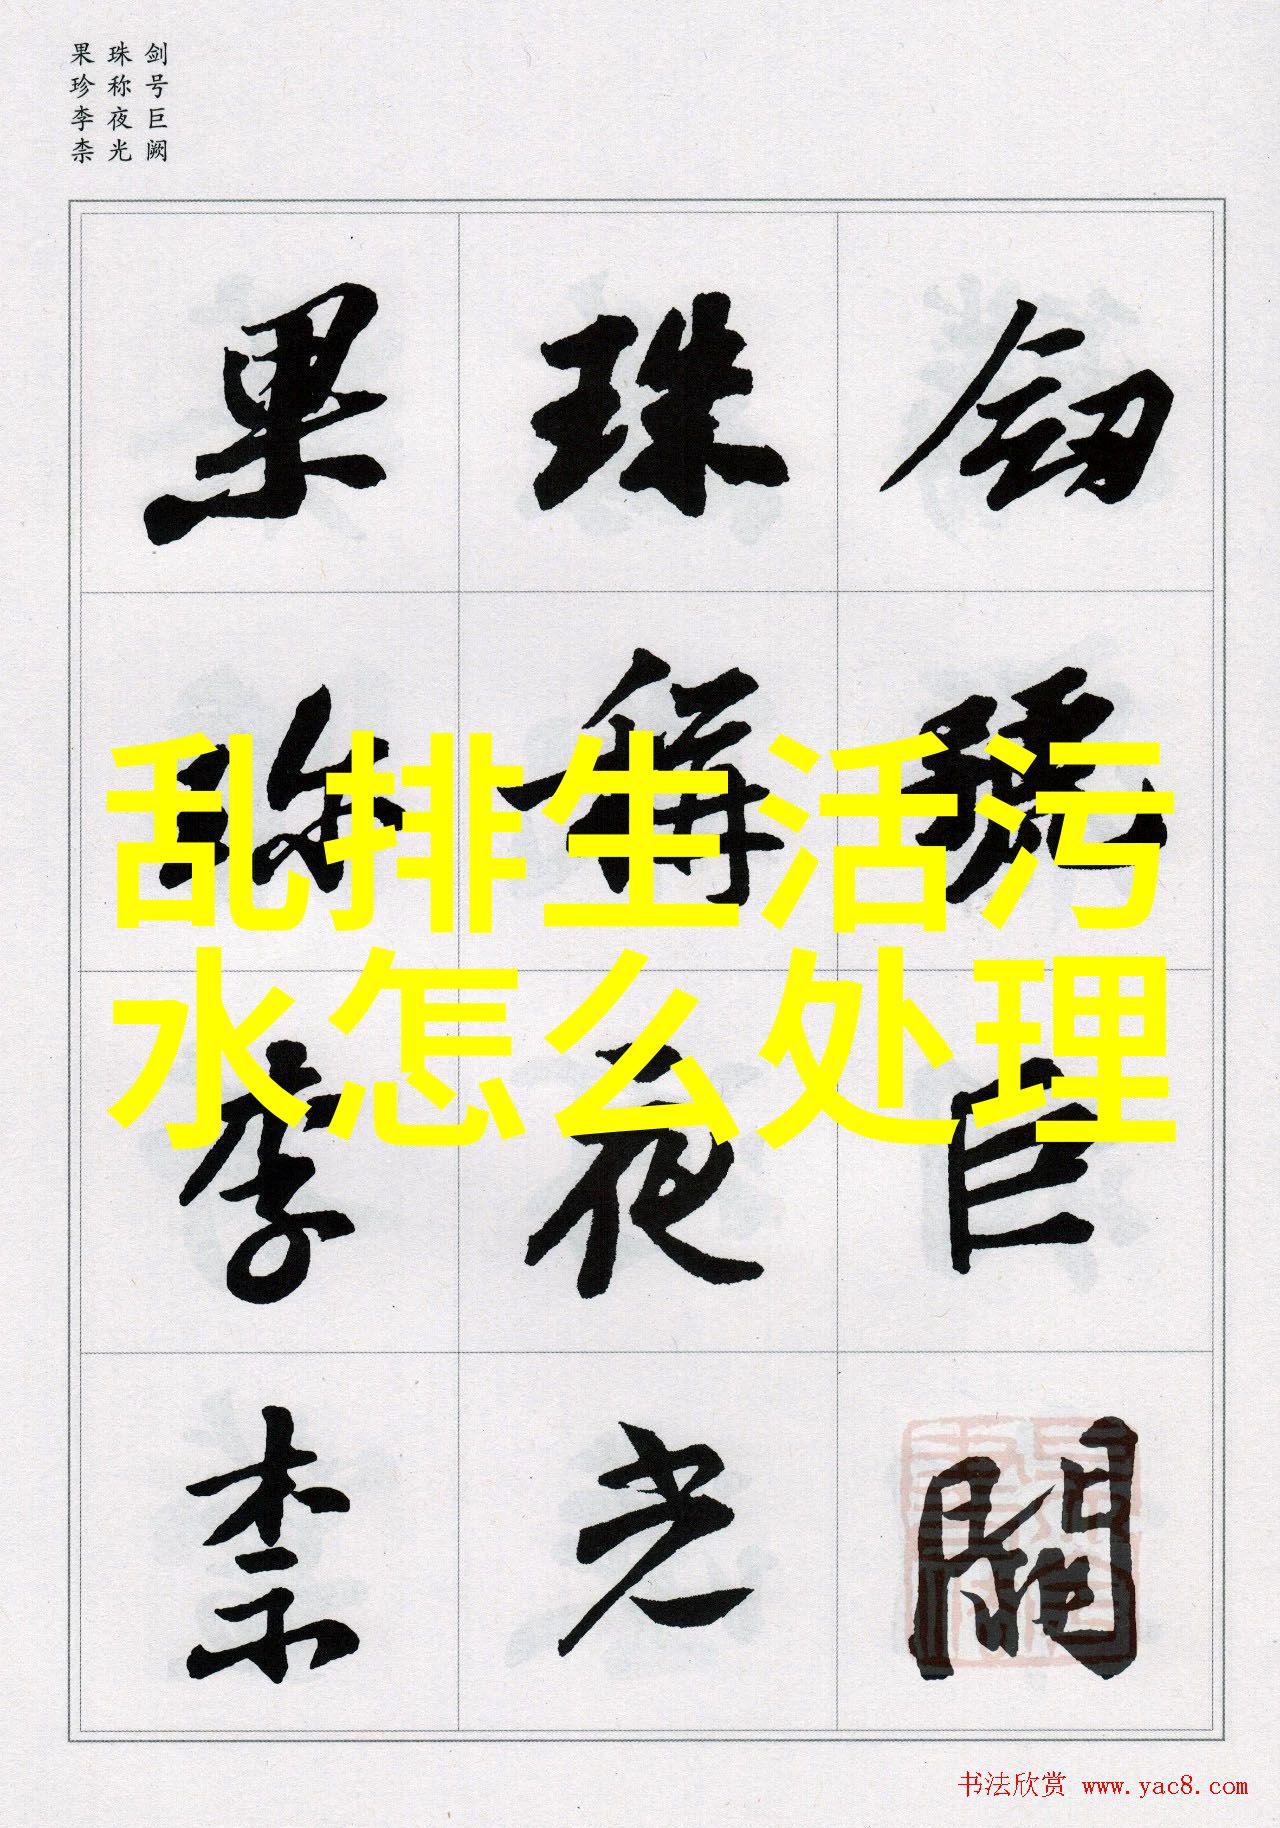 剑号巨阙
珠称夜光
果珍李柰
劒號巨闕
珠稱夜光
果珍李柰
乱排生活污
水怎么处理
书法欣赏 www.yac8.com